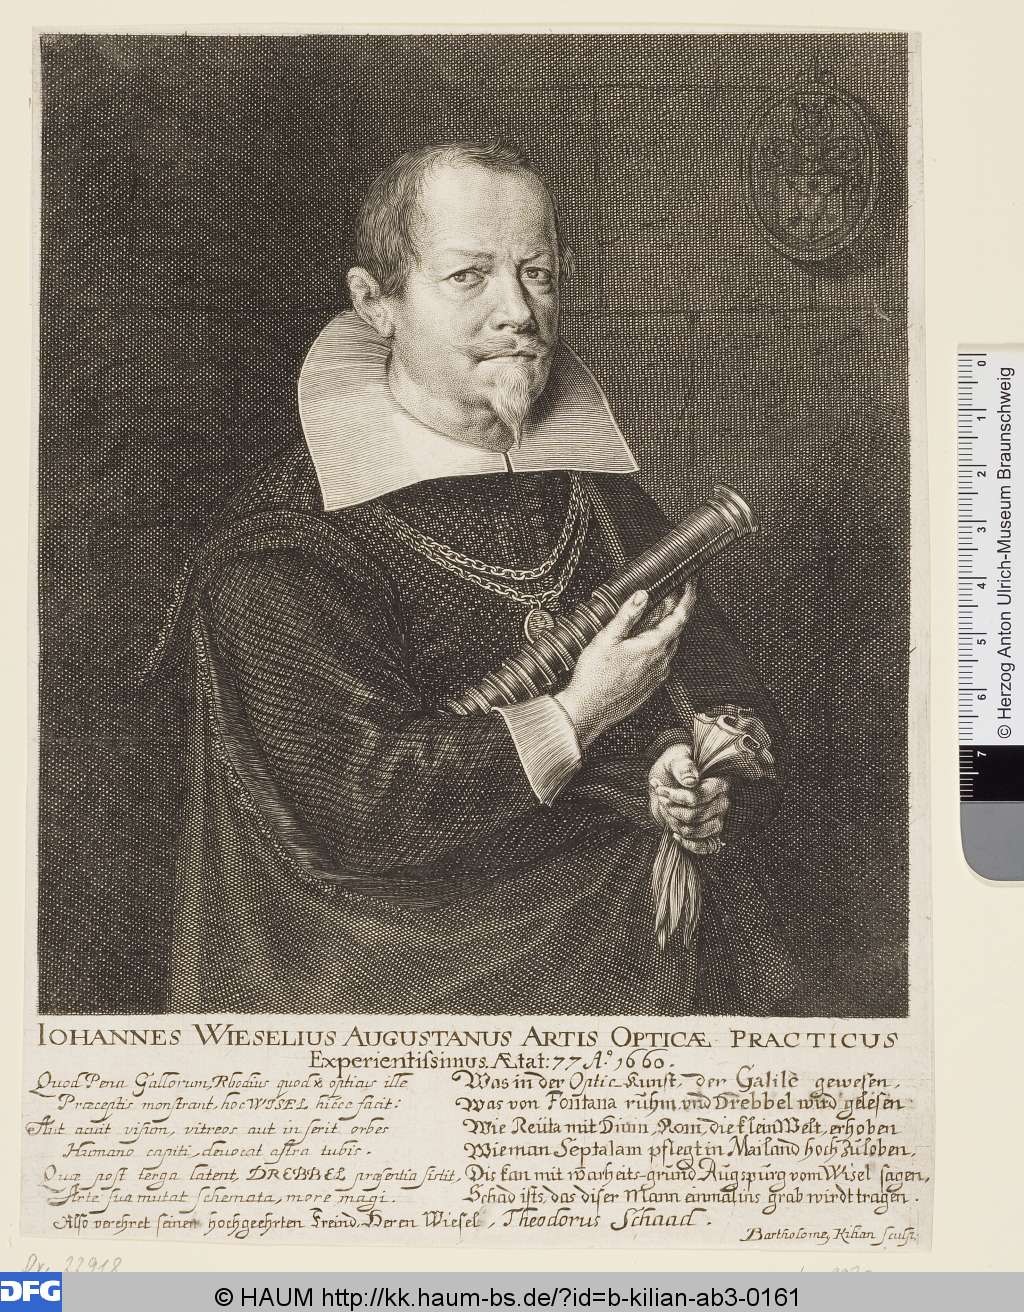 IOHANNES WIESELIUS AUGUSTANUS ARTIS OPTICÆ PRACTICUS
Experientissimus. Ætat: 77 Aº. 1660.
Quod Pena Gallorum, Rhodius quod & opticus ille
Præceptis monstrant, hoc WISEL hicce facit:
Aut acuit vision, vitreos aut inserit orbes
Humano capiti, devocat astra tubis.
Quæ post terga latent, DREBBEL præsentia sistit,
Arte sua mutat schemata, more magi.
Was in der Optic-kunst, der Galilè gewesen,
Was von Fontana rühm, vnd Drebbel wird gelesen
Wie Reiita mit Diuin, Rom, die klein Welt, erhoben
Wie man Septalam pflegt in Mailand hoch zu loben,
Dis kan mit warheits-grund Augspurg vom Wisel sagen,
Schad ists, das diser Mann einmal ins grab wirdt tragen.
Also verehret seinen hochgeehrten Freind, Heren Wiesel, Theodorus Schaad.
Bartholome, Kilian sculps.
22918
0
1
2
3
4
5
6
7
© Herzog Anton Ulrich-Museum Braunschweig
DFG
© HAUM http://kk.haum-bs.de/?id=b-kilian-ab3-0161